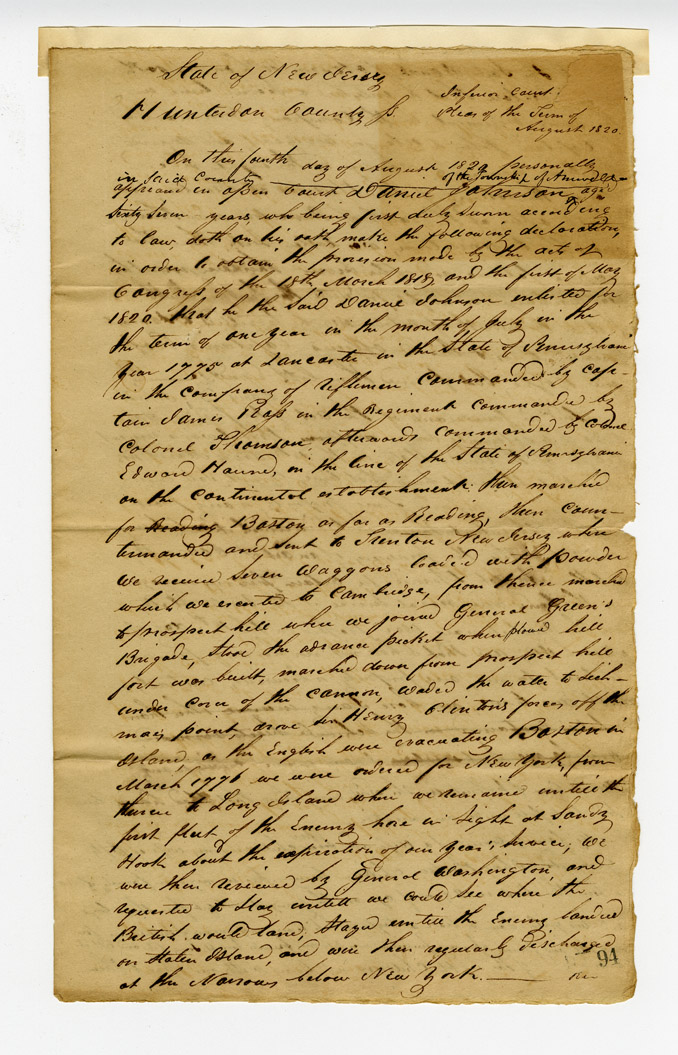 State of New Jersey
Hunterdon County ss.
Inferior Court:
Pleas of the Term of
August 1820.
On this fourth day of August 1820 personally
in said County of the Township of Amwell
appeared in open Court Daniel Johnson, aged
Sixty Seven years, who being first duly Sworn according
to law, doth on his oath make the following declaration,
in order to obtain the provision made by the acts of
Congress of the 18th March 1818, and the first of May
1820. that he the Said Daniel Johnson enlisted for
the term of one year in the month of July in the
year 1775 at Lancaster in the State of Pennsylvani
in the company of riflemen commanded by Cap-
tain James Ross in the Regiment commanded by
Colonel Thomson, afterwards commanded by Colonel
Edward Hand, in the line of the State of Pennsylvani
on the continental establishment: then marched
for Reading Boston as far as Reading, then coun-
termanded and sent to Trenton New Jersey where
we receive Seven waggons loaded with powder
which we escorted to Cambridge, from thence marched
to prospect hill where we joined General Green's
Brigade, Stood the advance picket when plowed hill
fort was built, marched down from prospect hill
under cover of the cannon, waded the water to Lich-
mais point, drove Sir Henry Clinton's forces off the
Island, as the English were evacuating Boston in
March 1776 we were ordered for New York, from
thence to Long Island where we remained untill the
first fleet of the Enemy hove in Sight at Sandy
Hook about the expiration of our year's Service; we
were then reviewed by General Washington and
requested to Stay untill we could See where the
British would land; Stayed untill the Enemy landed
on Staten Island, and were then regularly discharged
at the Narrows below New York. —
94